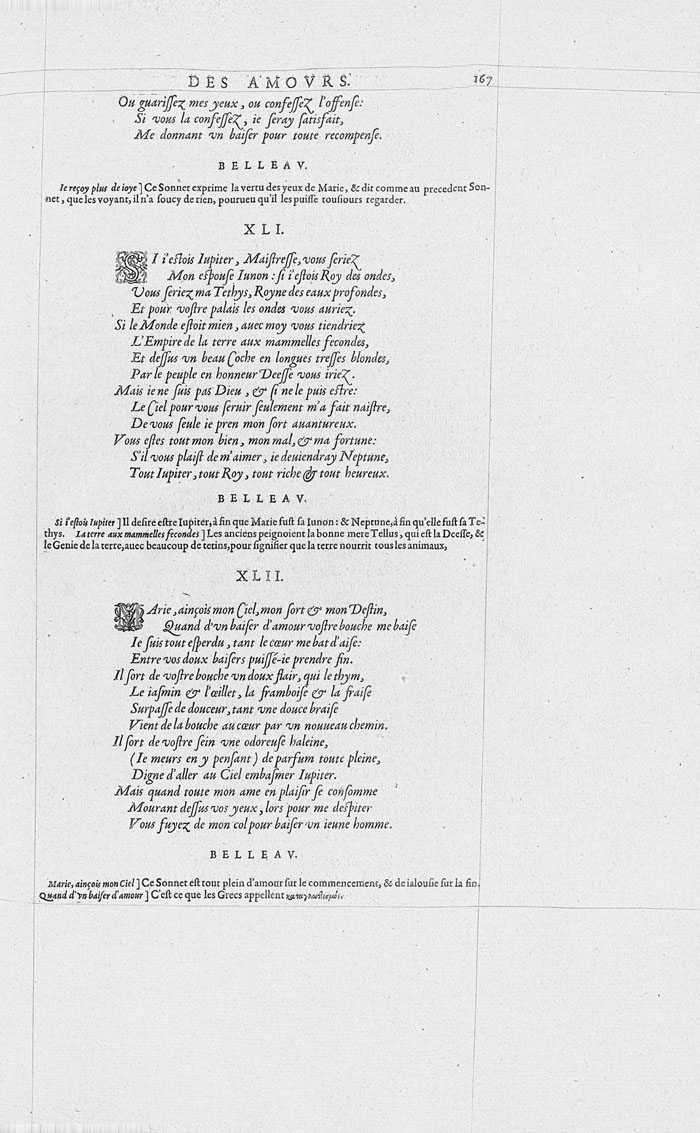 DES AMOVRS. 167
Ou guariſſez mes yeux, ou confeſſez l'offenſe:
Si vous la confeſſez, ie ſeray ſatisfait,
Me donnant vn baiſer pour toute recompenſe.
BELLEAV.
Ie reçoy plus de ioye] Ce Sonnet exprime la vertu des yeux de Marie, & dit comme au precedent Son-
net, que les voyant, il n'a ſoucy de rien, pourueu qu'il les puiſſe touſiours regarder.
XLI.
SI i'eſtois Iupiter, Maiſtreſſe, vous ſeriez
Mon eſpouſe Iunon: ſi i'eſtois Roy des ondes,
Vous ſeriez ma Tethys, Royne des eaux profondes,
Et pour voſtre palais les ondes vous auriez.
Si le Monde eſtoit mien, auec moy vous tiendriez
L'Empire de la terre aux mammelles fecondes,
Et deſſus vn beau Coche en longues treſſes blondes,
Par le peuple en honneur Deeſſe vous iriez.
Mais ie ne ſuis pas Dieu, & ſi ne le puis eſtre:
Le Ciel pour vous ſeruir ſeulement m'a fait naiſtre,
De vous ſeule ie pren mon ſort auantureux.
Vous eſtes tout mon bien, mon mal, & ma fortune:
S'il vous plaiſt de m'aimer, ie deuiendray Neptune,
Tout Iupiter, tout Roy, tout riche & tout heureux.
BELLEAV.
Si i'eſtois Iupiter] Il deſire eſtre Iupiter, à fin que Marie fuſt ſa Iunon: & Neptune, à fin qu'elle fuſt ſa Te-
thys. La terre aux mammelles fecondes] Les anciens peignoient la bonne mere Tellus, qui eſt la Deeſſe, &
le Genie de la terre, auec beaucoup de tetins, pour ſignifier que la terre nourrit tous les animaux,
XLII.
MArie, ainçois mon Ciel, mon ſort & mon Deſtin,
Quand d'vn baiſer d'amour voſtre bouche me baiſe
Ie ſuis tout eſperdu, tant le cœur me bat d'aiſe:
Entre vos doux baiſers puiſſé-ie prendre fin.
Il ſort de voſtre bouche vn doux flair, qui le thym,
Le iaſmin & l'œillet, la framboiſe & la fraiſe
Surpaſſe de douceur, tant vne douce braiſe
Vient de la bouche au cœur par vn nouueau chemin.
Il ſort de voſtre ſein vne odoreuſe haleine,
(Ie meurs en y penſant) de parfum toute pleine,
Digne d'aller au Ciel embaſmer Iupiter.
Mais quand toute mon ame en plaiſir ſe conſomme
Mourant deſſus vos yeux, lors pour me deſpiter
Vous fuyez de mon col pour baiſer vn ieune homme.
BELLEAV.
Marie, ainçois mon Ciel] Ce Sonnet eſt tout plein d'amour ſur le commencement, & de ialouſie ſur la fin.
Quand d'vn baiſer d'amour] C'eſt ce que les Grecs appellent